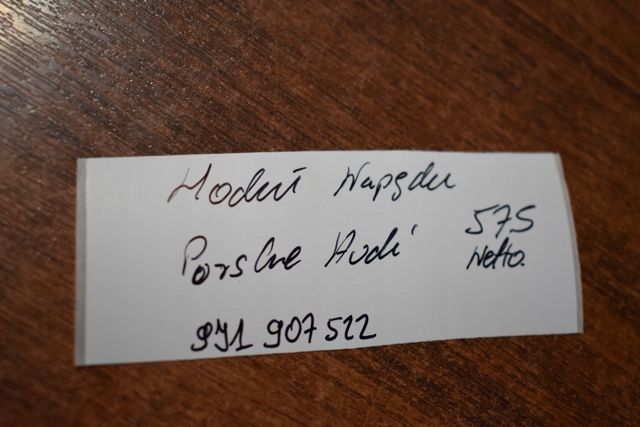 Moduł Napędu
Porsche Audi
575
Netto
9J1 907 522